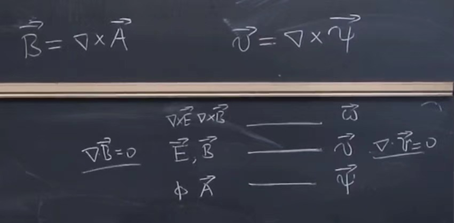 B⃗ = ∇×A⃗    v⃗ = ∇×Ψ⃗
∇×E⃗ ∇×B⃗ —— ω⃗
∇B⃗=0   E⃗, B⃗ —— v⃗   ∇·v⃗=0
ϕ A⃗ —— Ψ⃗